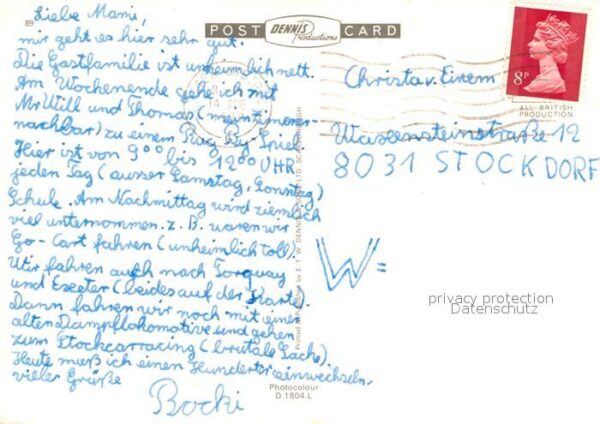 89
Liebe Mami,
mir geht es hier sehr gut.
Die Gastfamilie ist unheimlich nett.
Am Wochenende gehe ich mit
Mr Will und Thomas (mein Zimmer-
nachbar) zu einem Rug By-Spiel
Hier ist von 9⁰⁰ bis 12⁰⁰ UHR
jeden Tag (ausser Samstag, Sonntag)
Schule. Am Nachmittag wird ziemlich
viel unternommen. z. B. waren wir
Go-Cart fahren (unheimlich toll).
Wir fahren auch nach Torquay
und Exeter (beides auf der Karte).
Dann fahren wir noch mit einer
alten Dampflokomotive und gehen
zum Stockcarracing (brutale Sache)
Heute muß ich einen Hunderter einwechseln.
viele Grüße
Bocki
POST CARD
DENNIS
Productions
8P
ALL BRITISH
PRODUCTION
Christa v. Einem
Waisensteinstraße 12
8031 STOCKDORF
W=
Photocolour
D.1804.L
privacy protection
Datenschutz